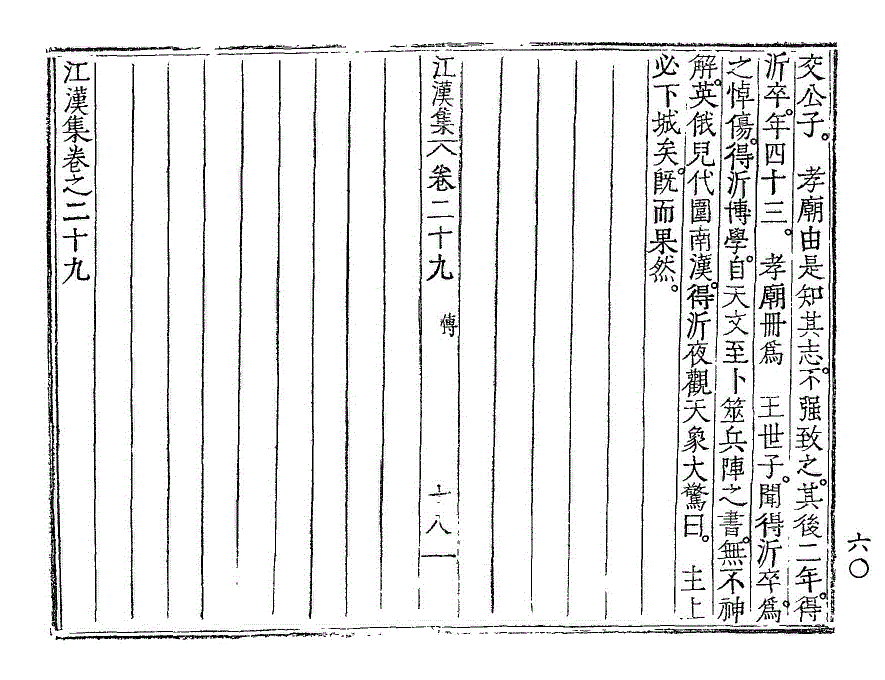 交公子。　孝廟由是知其志。不强致之。其後二年。得
沂卒。年四十三。　孝廟冊爲　王世子。聞得沂卒。爲
之悼傷。得沂博學。自天文至卜筮兵陣之書。無不神
解。英俄兒代圍南漢。得沂夜觀天象大驚曰。　主上
必下城矣。旣而果然。
江漢集 卷二十九 傳 十八
江漢集卷之二十九
六〇